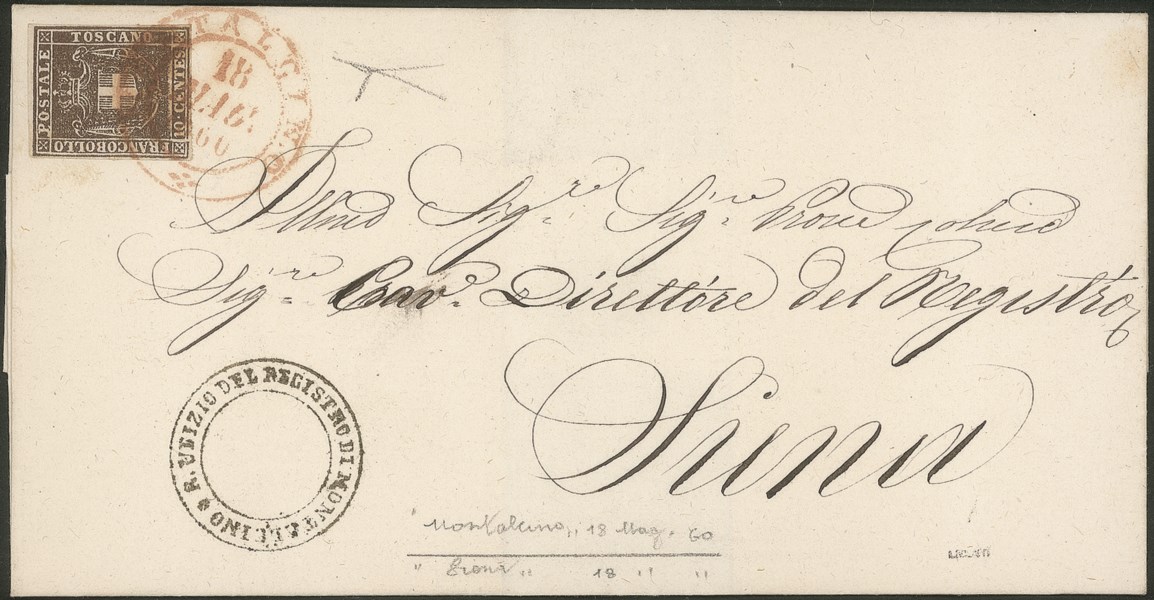 TOSCANO
POSTALE
10 CENTES
FRANCOBOLLO
MONTALCINO
18
MAG.
60
Illmo Sigre Sigre Prone colmo
Sigre Cavo Direttore del Registro
Siena
R. UFIZIO DEL REGISTRO DI MONTALCINO
" Montalcino,, 18 Mag. 60
" Siena ,, 18 " "